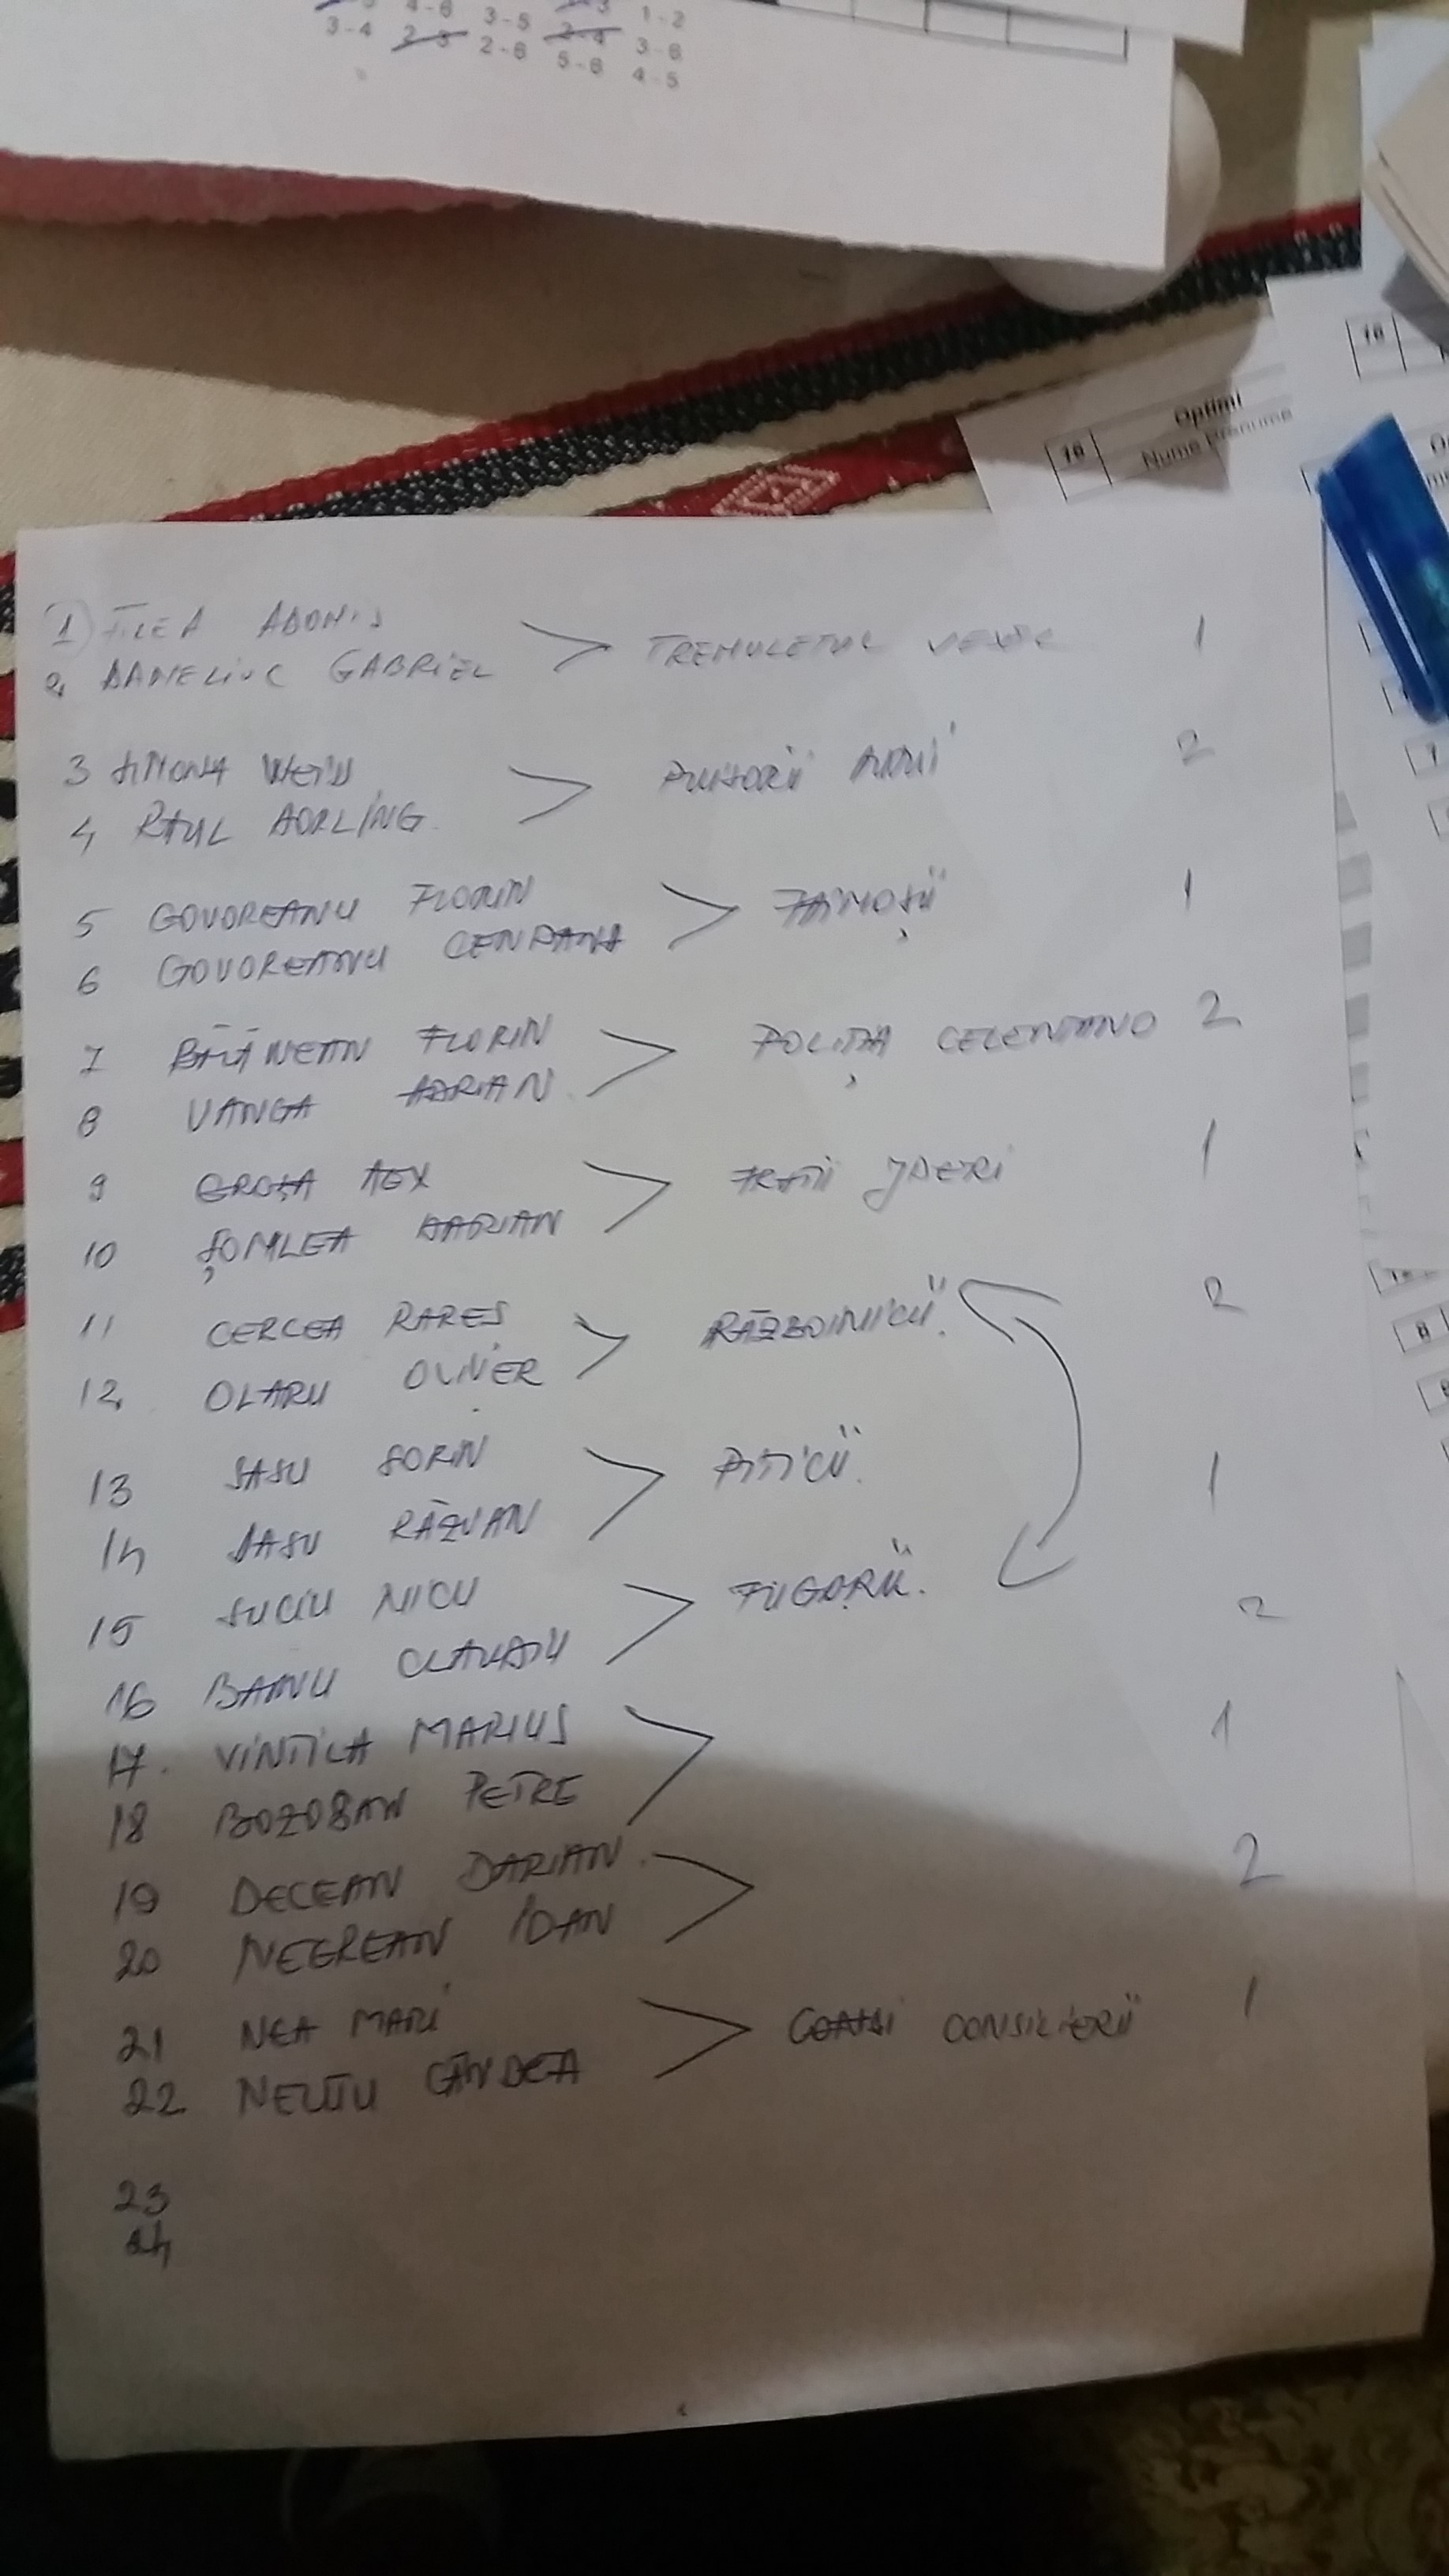 3-4 2-3 2-6 2-4 3-6
4-6 3-5 1-2
5-6 4-5
16 Optimi
Nume Prenume
16
1) FILEA ADONIS
2 DANELIUC GABRIEL > TREMULETUL VEXEL 1
3 SIMONA WEISS
4 RAUL ADRLING > 2
5 GOVOREANU FLORIN
6 GOVOREANU CENDANA > FAIMOȘII 1
7 BĂLĂNEAN FLORIN
8 VANGA ADRIAN > POLIȚIA CELENTANO 2
9 GROZA ALEX
10 ȘOMLEA DARIAN > FRAȚII JDERI 1
11 CERCEA RARES
12 OLARU OLIVIER > RĂZBOINICII 2
13 SASU SORIN
14 SASU RĂZVAN > PITICII. 1
15 SUCIU NICU
16 BAINU CLAUDIU > FUGARII. 2
17. VINTILA MARIUS
18 BOZOBAN PETRE > 1
19 DECEAN DARIAN
20 NEGREAN IOAN > 2
21 NEA MARI
22 NELUȚU CÂNDEA > CONSILIERII 1
23
24